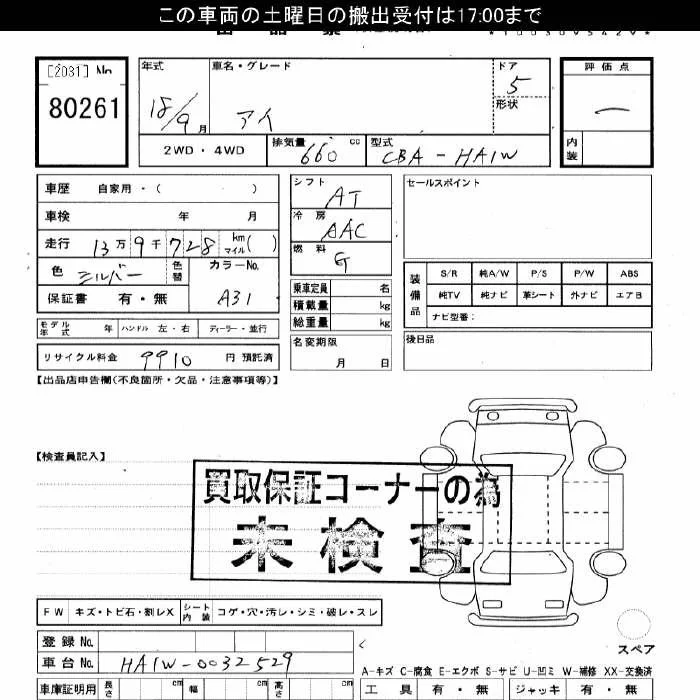 この車両の土曜日の搬出受付は17:00まで
[2031] No
80261
年式 18/9 月
車名・グレード アイ
ドア 5
形状
評価点 ―
内装
2WD・4WD
排気量 660 cc
型式 CBA-HA1W
車歴 自家用・( )
車検 年 月
走行 13万9千728 km マイル( )
色 シルバー 色替
カラーNo. A31
保証書 有・無
シフト AT
冷房 AAC
燃料 G
乗車定員 名
積載量 kg
総重量 kg
名変期限 月 日
セールスポイント
装備品
S/R 純A/W P/S P/W ABS
純TV 純ナビ 革シート 外ナビ エアB
ナビ型番:
後日品
モデル年式 年 ハンドル 左・右 ディーラー・並行
リサイクル料金 9910 円 預託済
【出品店申告欄(不良箇所・欠品・注意事項等)】
【検査員記入】
買取保証コーナーの為
未検査
FW キズ・トビ石・割レX シート内装 コゲ・穴・汚レ・シミ・破レ・スレ
登録No.
車台No. HA1W-0032529
スペア
A-キズ C-腐食 E-エクボ S-サビ U-凹ミ W-補修 XX-交換済
車庫証明用 長さ cm 幅 cm 高さ cm
工具 有・無 ジャッキ 有・無